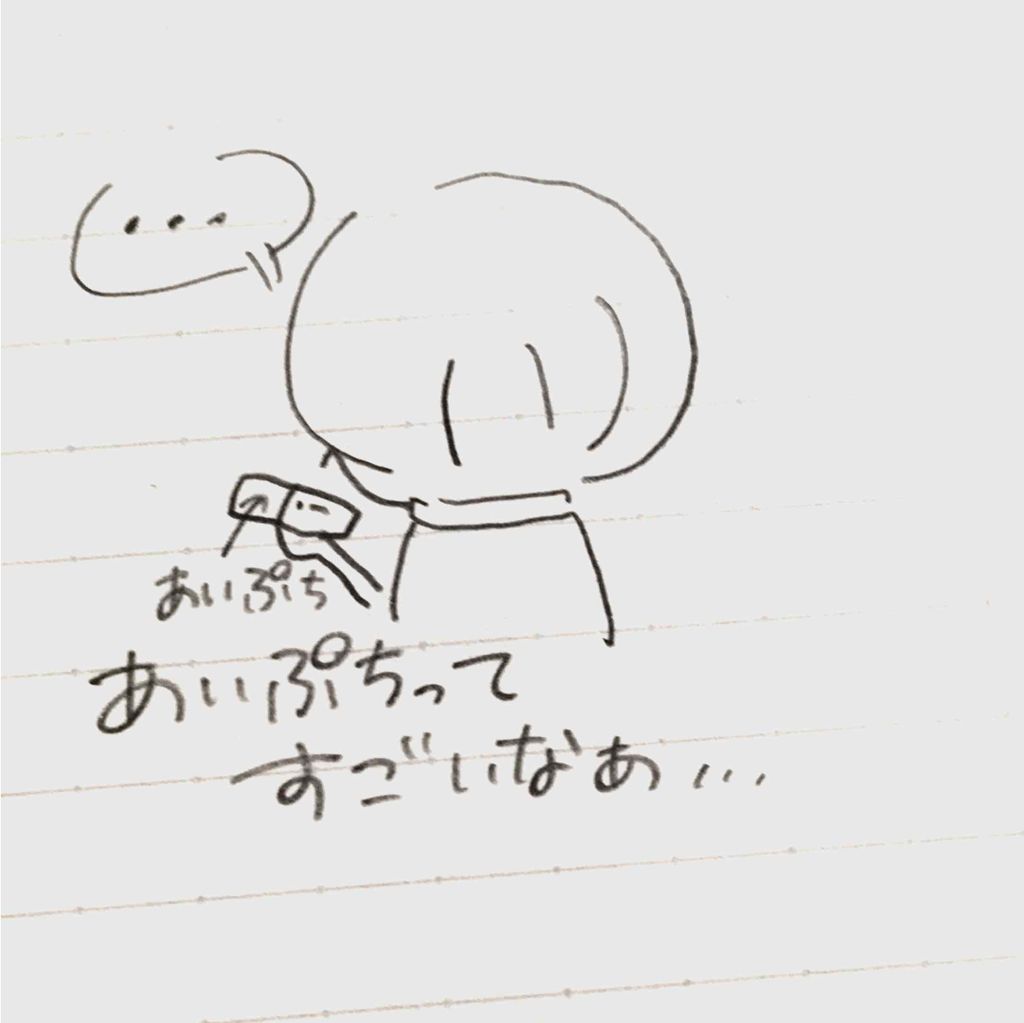 ・・・
あいぷち
あいぷちって
すごいなぁ...